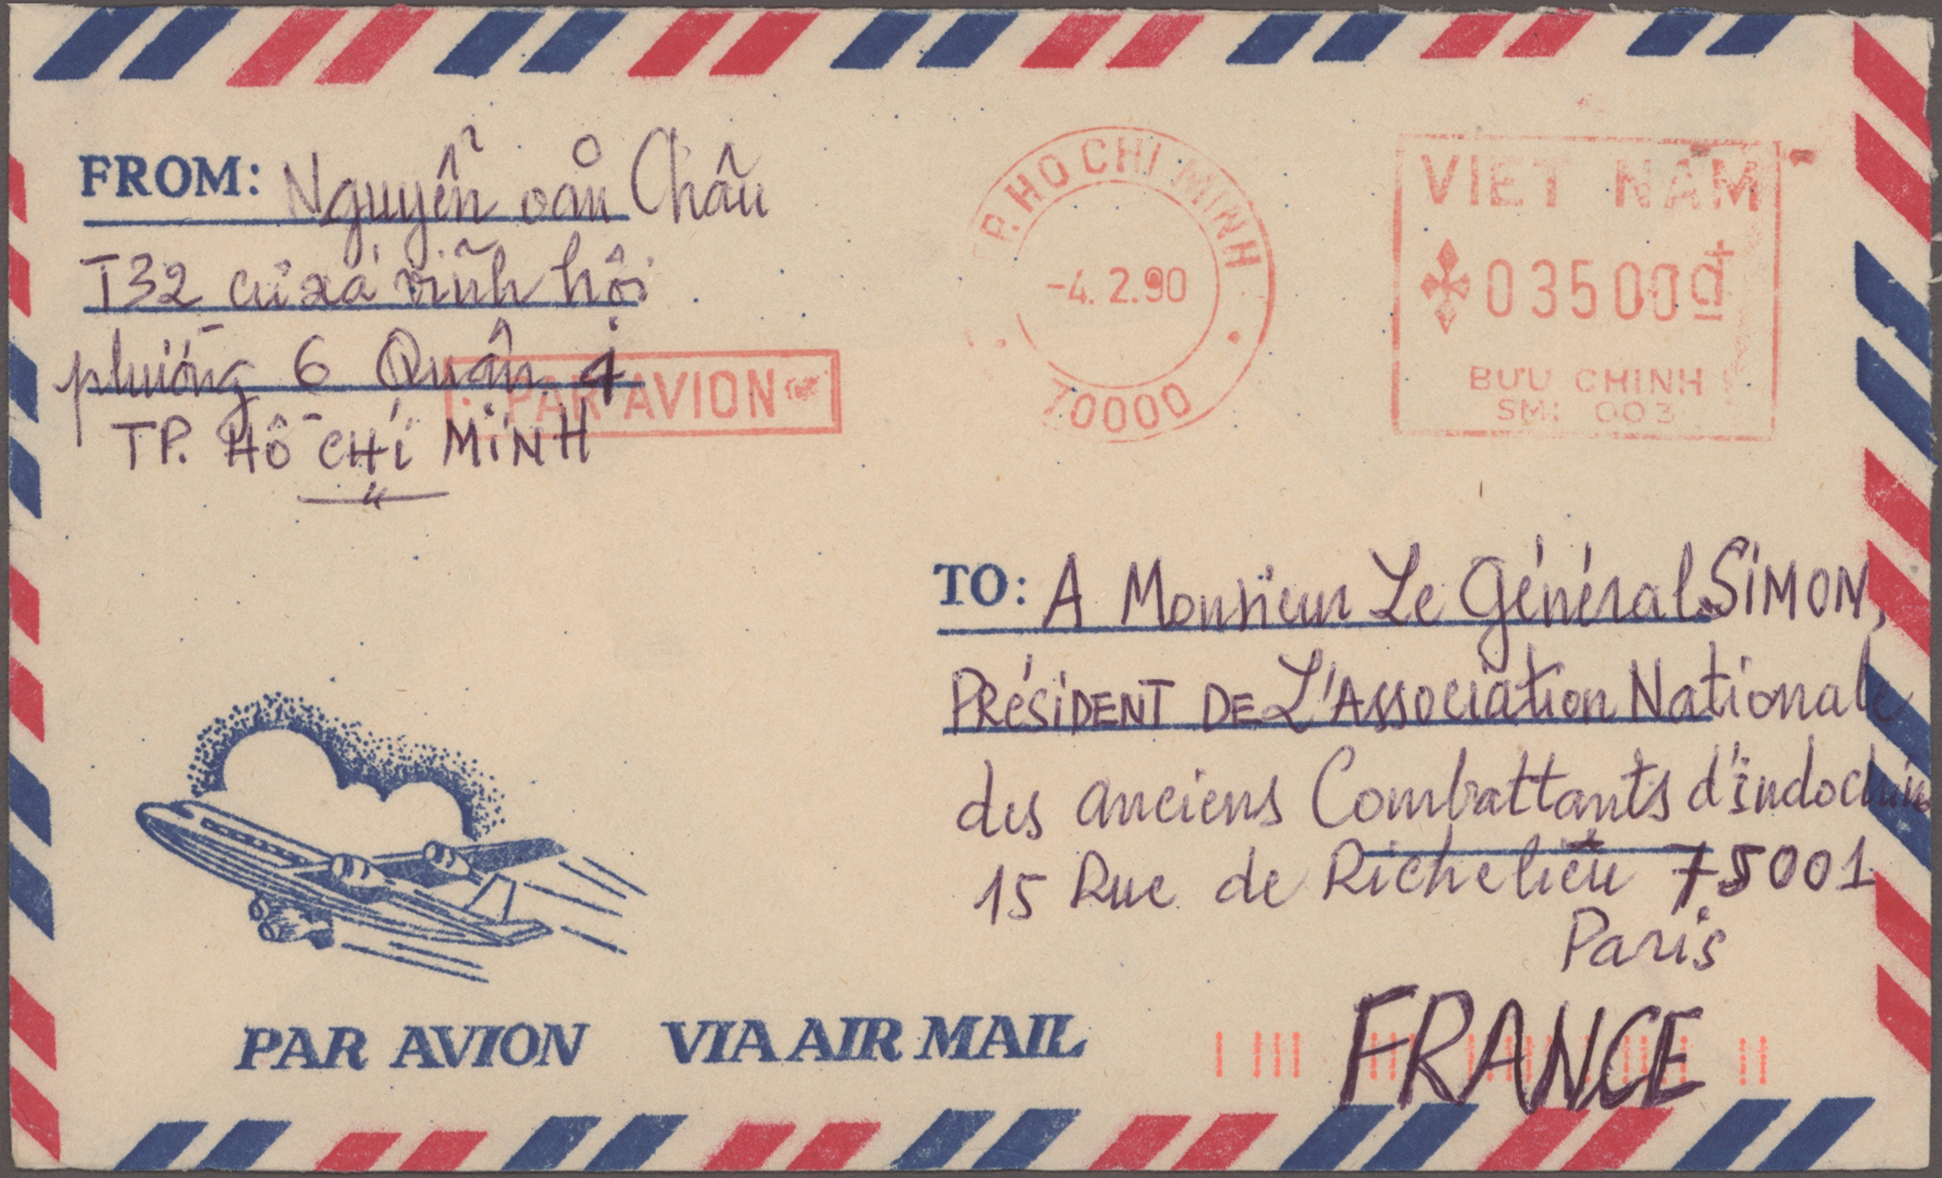 FROM: Nguyễn văn Châu
T32 cư xá vĩnh hội
phường 6 Quận 4
PAR AVION
TP. HỒ CHÍ MINH
TP. HO CHI MINH
-4. 2.90
70000
VIET NAM
03500đ
BƯU CHINH
SM: 003
TO: A Monsieur Le Général SIMON,
PRéSIDENT DE L'Association Nationale
des anciens Combattants d'indochine
15 Rue de Richelieu 75001
Paris
FRANCE
PAR AVION VIA AIR MAIL